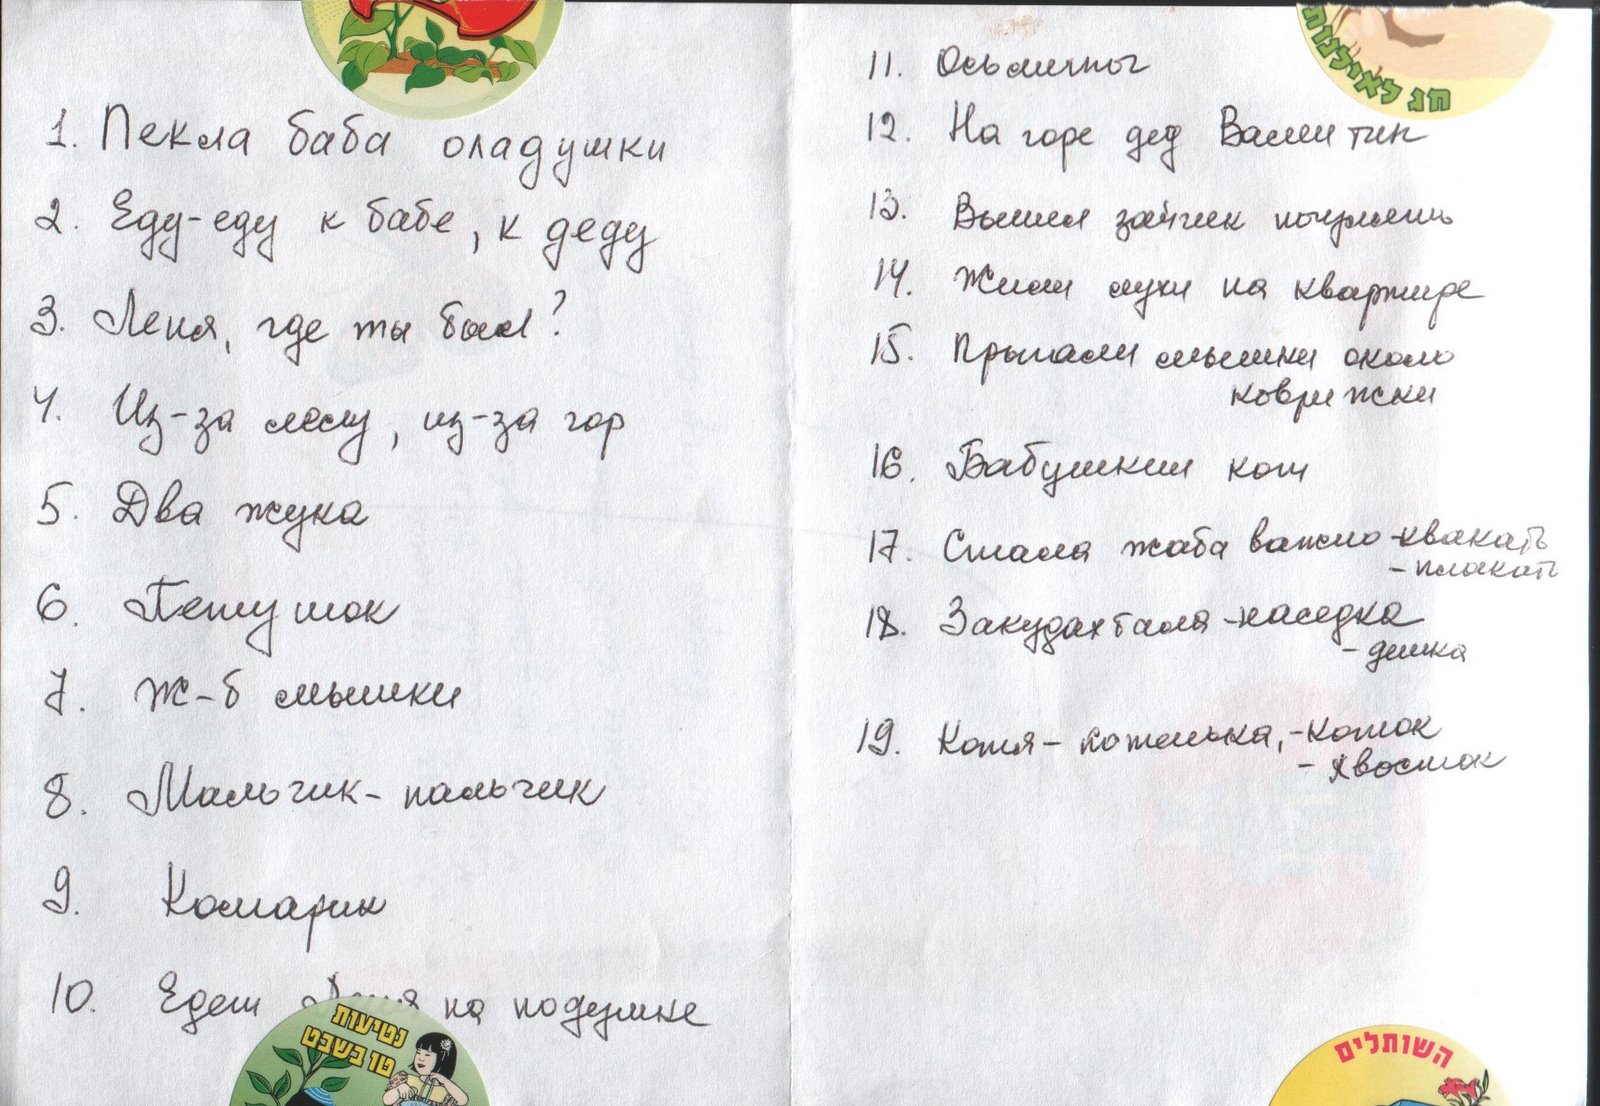 1. Пекла баба оладушки
2. Еду-еду к бабе, к деду
3. Леня, где ты был?
4. Из-за лесу, из-за гор
5. Два жука
6. Петушок
7. Ж-б мышки
8. Мальчик-пальчик
9. Комарик
10. Едет Леня на подушке
נטיעות
טו בשבט
11. Осьминог
12. На горе дед Валентин
13. Вышел зайчик погулять
14. Жили мухи на квартире
15. Прыгали мышки около
коврижки
16. Бабушкин кот
17. Стала жаба важно -квакать
- плакать
18. Закудахтала -наседка
- детка
19. Котя- котенька, -коток
- хвосток
חג לאילנות
השותלים